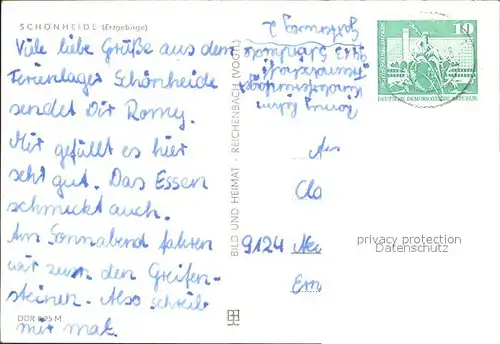 SCHÖNHEIDE (Erzgebirge)
Viele liebe Grüße aus dem
Ferienlager Schönheide
sendet Dir Romy.
Mir gefällt es hier
seht gut. Das Essen
schmeckt auch.
Am Sonnabend fahren
wir zum den Greifen-
steinen. Also schreib
mir mal.
DDR 9,95 M
BILD UND HEIMAT · REICHENBACH (VOGTL)
Romy
Kinderferienlager
"Freundschaft"
9413 Schönheide
10
DEUTSCHE DEMOKRATISCHE REPUBLIK
An
Cla
9124 Neu
Ern
privacy protection
Datenschutz